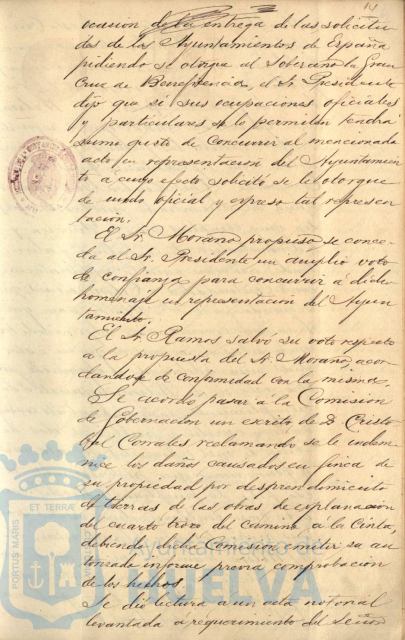 14
ocasion de la entrega de las solicitu
des de los Ayuntamientos de España
pidiendo se otorgue al Soberano la Gran
Cruz de Beneficencia, el Sr. Presidente
dijo que si sus ocupaciones oficiales
y particulares se lo permiten tendrá
sumo gusto de concurrir al mencionado
acto en representación del Ayuntamien
to á cuyo efecto solicitó se le otorgue
de modo oficial y expreso tal represen
tación.
El Sr. Morano propuso se conce
da al Sr. Presidente un amplio voto
de confianza para concurrir á dicho
homenaje en representación del Ayun
tamiento.
El Sr. Ramos salvó su voto respecto
a la propuesta del Sr. Morano, acor
dandose de conformidad con la misma.
Se acordó pasar á la Comision
de Gobernacion un escrito de D. Cristo
bal Corrales reclamando se le indem
nice los daños causados en finca de
su propiedad por desprendimiento
de tierras de las obras de explanación
del cuarto trozo del camino á la Cinta,
debiendo dicha Comision emitir su au
torizado informe previa comprobación
de los hechos.
Se dió lectura a un acta notarial
levantada a requerimiento del Señor
PORTUS MARIS ET TERRAE
Ayuntamiento de
HUELVA